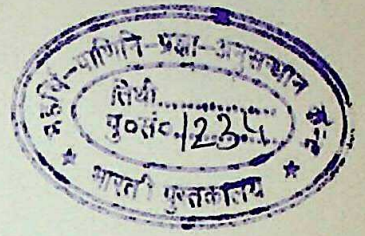 महर्षि-पाणिनि-प्रज्ञा-अनुसन्धान
तिथी..............
पु०सं० 1234
★ भारती पुस्तकालय ★